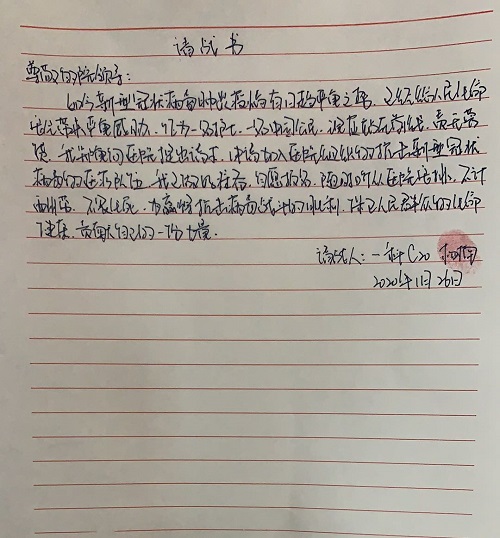 请战书
尊敬的医院领导：
如今新型冠状病毒肺炎疫情有日趋严重之势，已经给人民生命
健康带来严重威胁。作为一名护士，一名中国公民，
我郑重向医院提出请求，申请加入医院组织的抗击新型冠状
病毒的医疗队伍，我已做好准备，自愿报名，随时听从医院安排，不计
报酬，不畏生死，为赢得抗击病毒战斗的胜利，保卫人民群众的生命
健康，贡献自己的一份力量。
请战人：一科C20
2020年1月26日